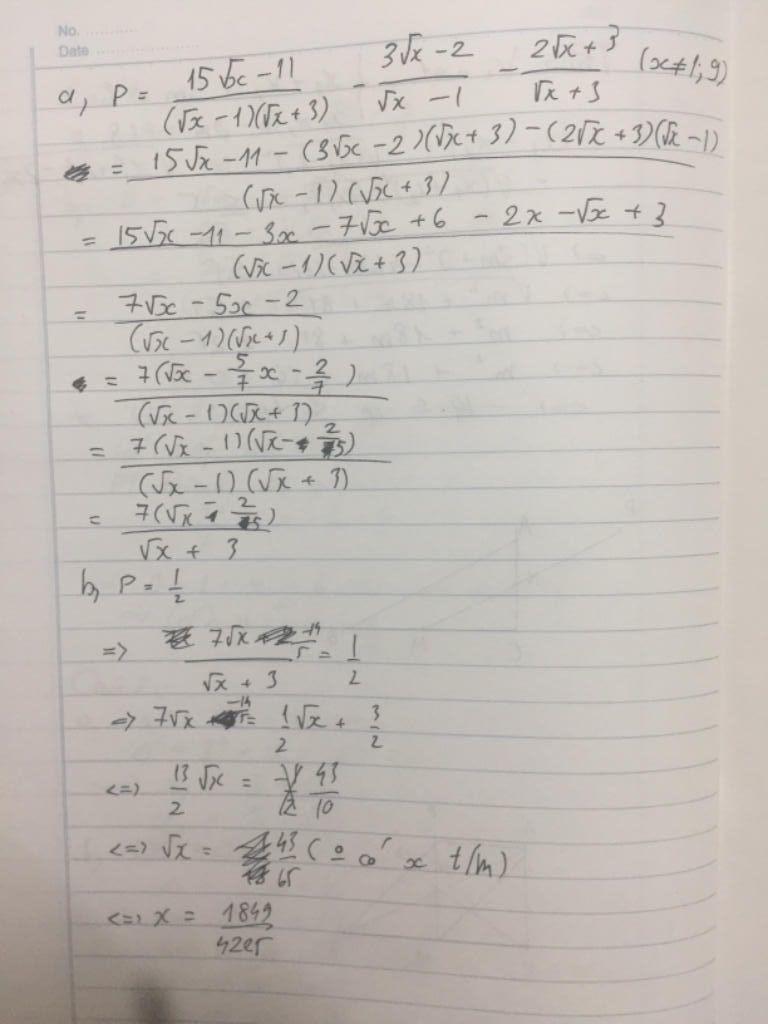 No. ............
Date ............
a, P = (15√x - 11)/((√x - 1)(√x + 3)) - (3√x - 2)/(√x - 1) - (2√x + 3)/(√x + 3) (x ≠ 1; 9)
= (15√x - 11 - (3√x - 2)(√x + 3) - (2√x + 3)(√x - 1))/((√x - 1)(√x + 3))
= (15√x - 11 - 3x - 7√x + 6 - 2x - √x + 3)/((√x - 1)(√x + 3))
= (7√x - 5x - 2)/((√x - 1)(√x + 3))
= 7(√x - 5/7 x - 2/7)/((√x - 1)(√x + 3))
= 7(√x - 1)(√x - 2/5)/((√x - 1)(√x + 3))
= 7(√x - 2/5)/(√x + 3)
b, P = 1/2
=> (7√x -14/5)/(√x + 3) = 1/2
=> 7√x -14/5 = 1/2 √x + 3/2
<=> 13/2 √x = 43/10
<=> √x = 43/65 ( có x t/m)
<=> x = 1849/4225